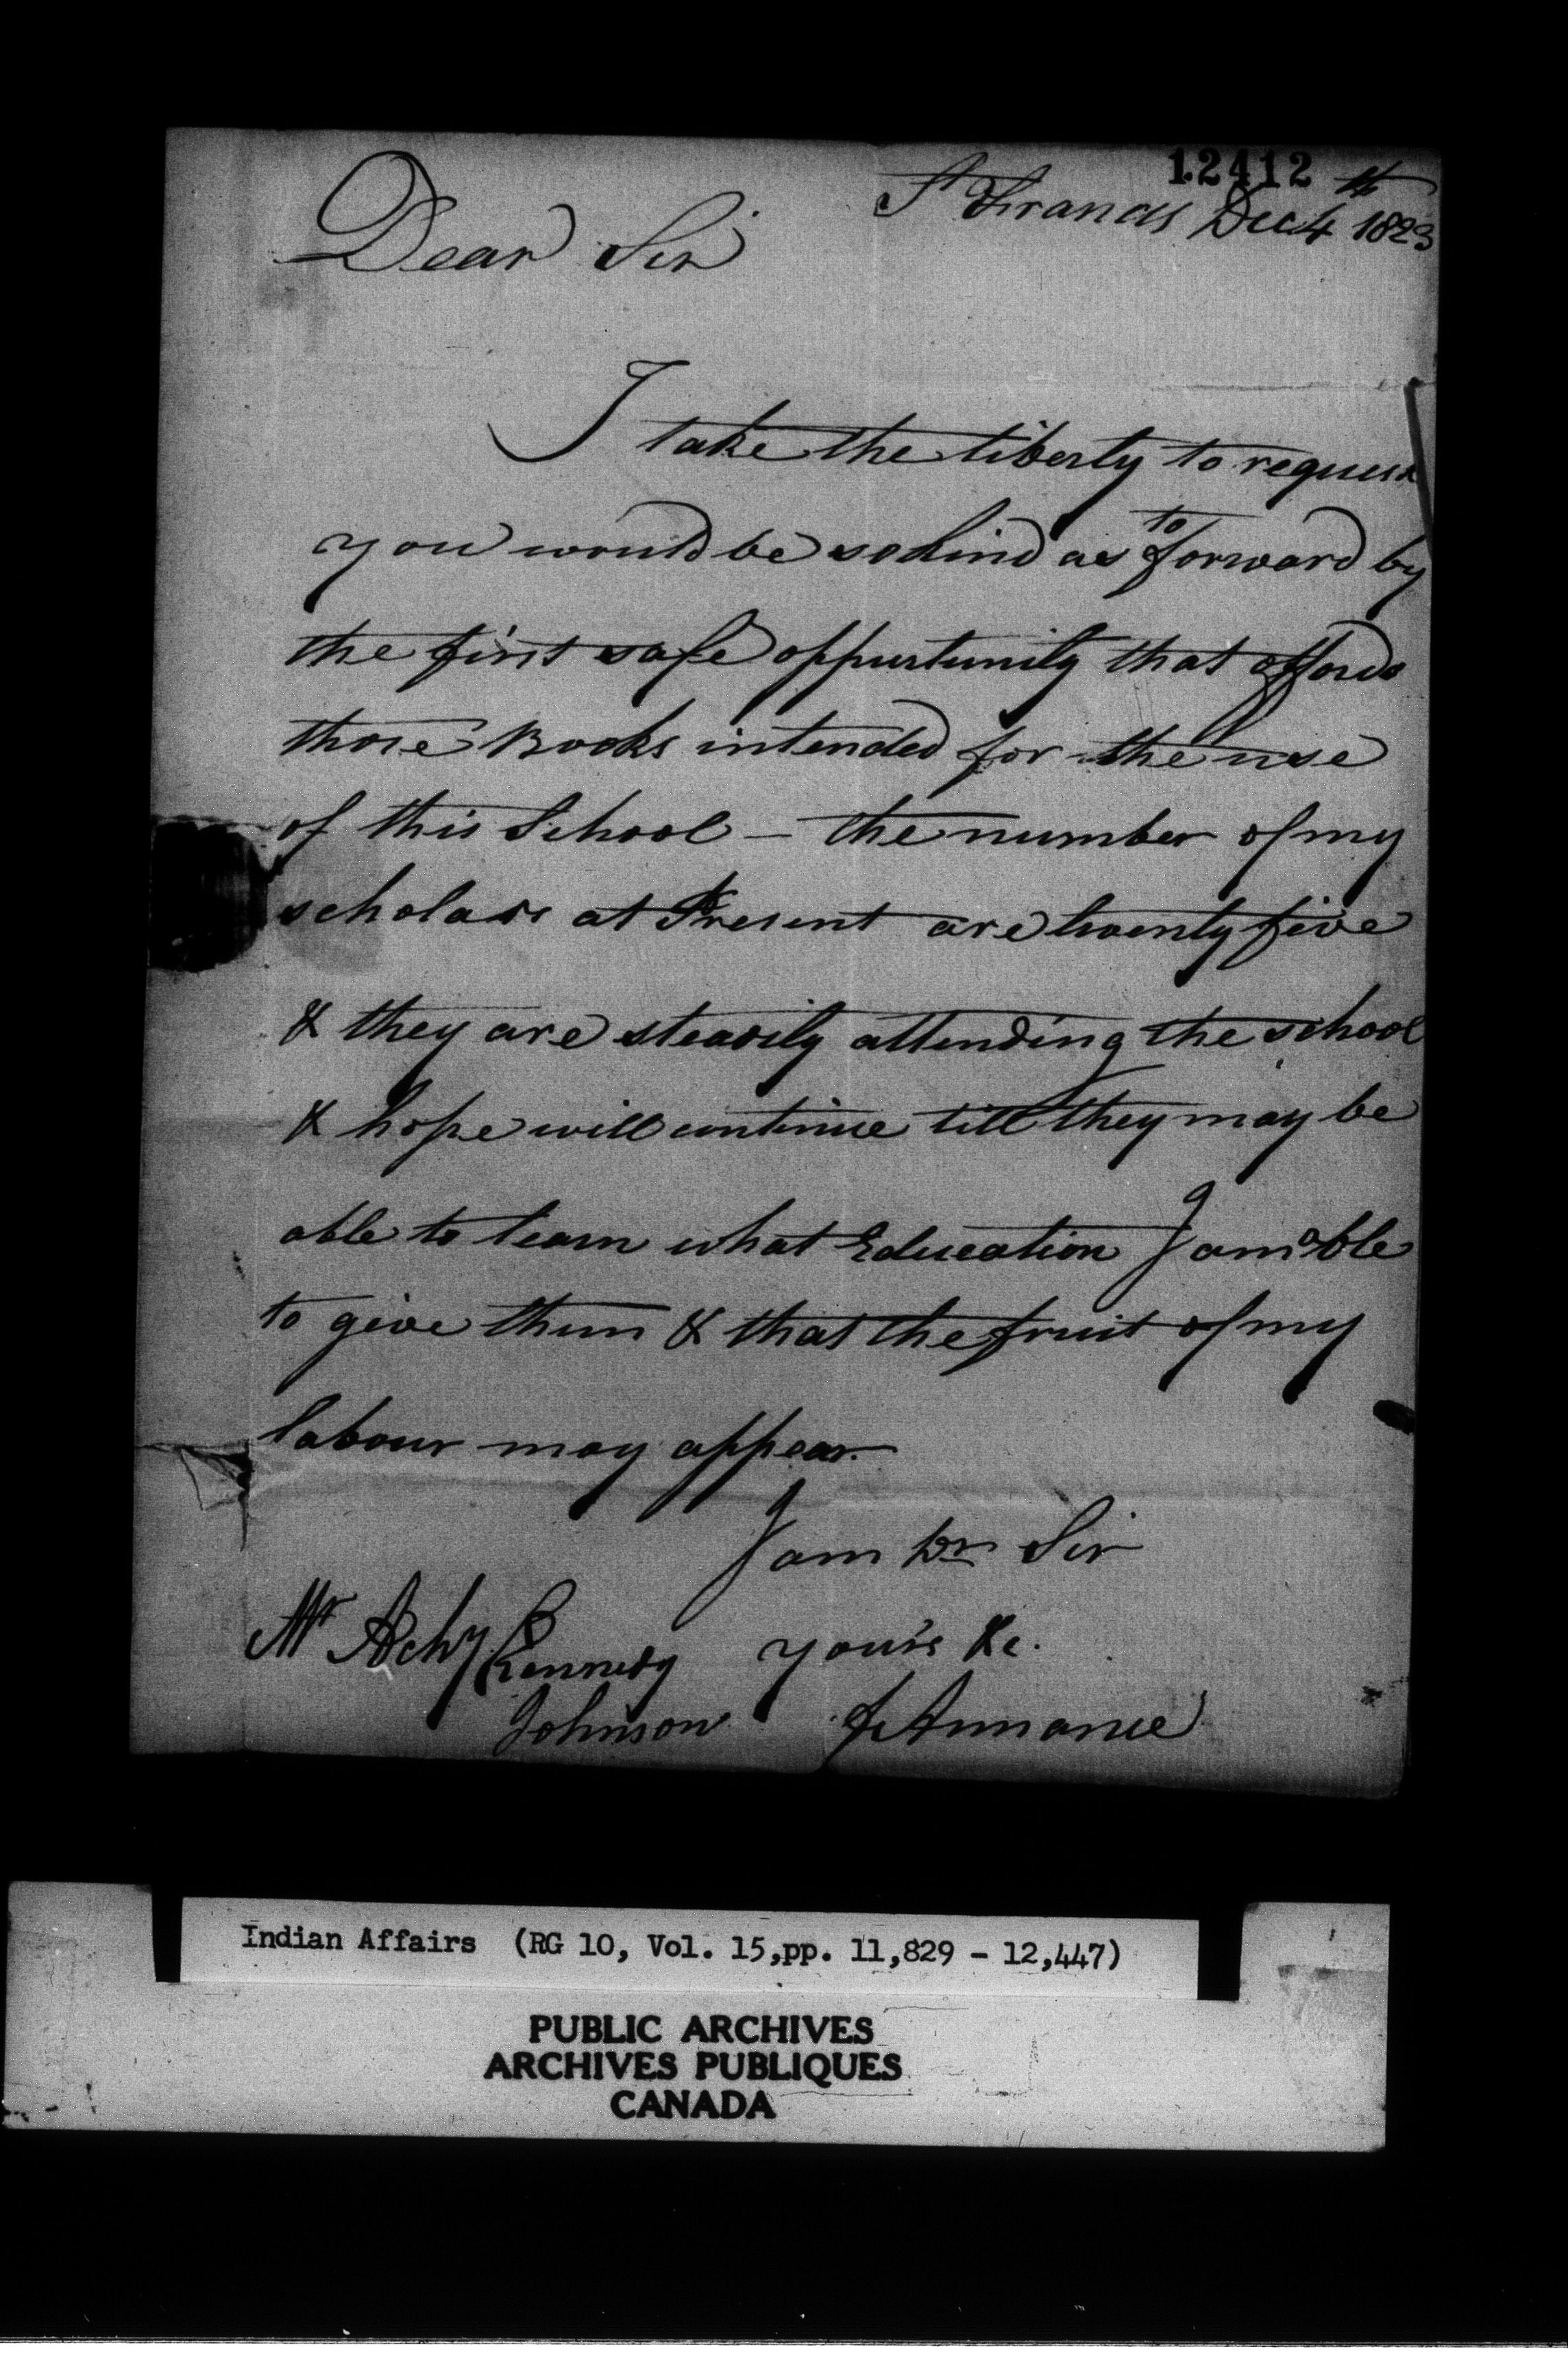 12412
St Francis Dec 4th 1823
Dear Sir
I take the liberty to request
you would be so kind as to forward by
the first safe oppurtunity that affords
those Books intended for the use
of this School – the number of my
scholars at Present are twenty five
& they are steadily attending the school
& hope will continue till they may be
able to learn what Education I am able
to give them & that the fruit of my
labour may appear.
I am Dr Sir
Mr Achy Kennedy your's &c.
Johnson Annance
Indian Affairs (RG 10, Vol. 15,pp. 11,829 - 12,447)
PUBLIC ARCHIVES
ARCHIVES PUBLIQUES
CANADA